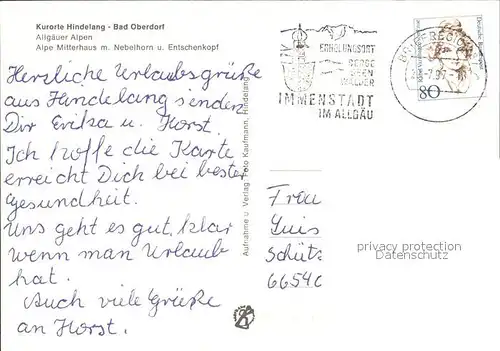 Kurorte Hindelang - Bad Oberdorf
Allgäuer Alpen
Alpe Mitterhaus m. Nebelhorn u. Entschenkopf
Herzliche Urlaubsgrüße
aus Hindelang senden
Dir Erika u. Horst.
Ich hoffe die Karte
erreicht Dich bei bester
Gesundheit.
Uns geht es gut, klar
wenn man Urlaub
hat.
Auch viele Grüße
an Horst.
Aufnahme u. Verlag Foto Kaufmann, Hindelang
ERHOLUNGSORT
BERGE
SEEN
WÄLDER
IMMENSTADT
IM ALLGÄU
BRIEFREGION
80
Deutsche Bundespost
Frau
Luis
Schütz
6654
privacy protection
VEREINIGT